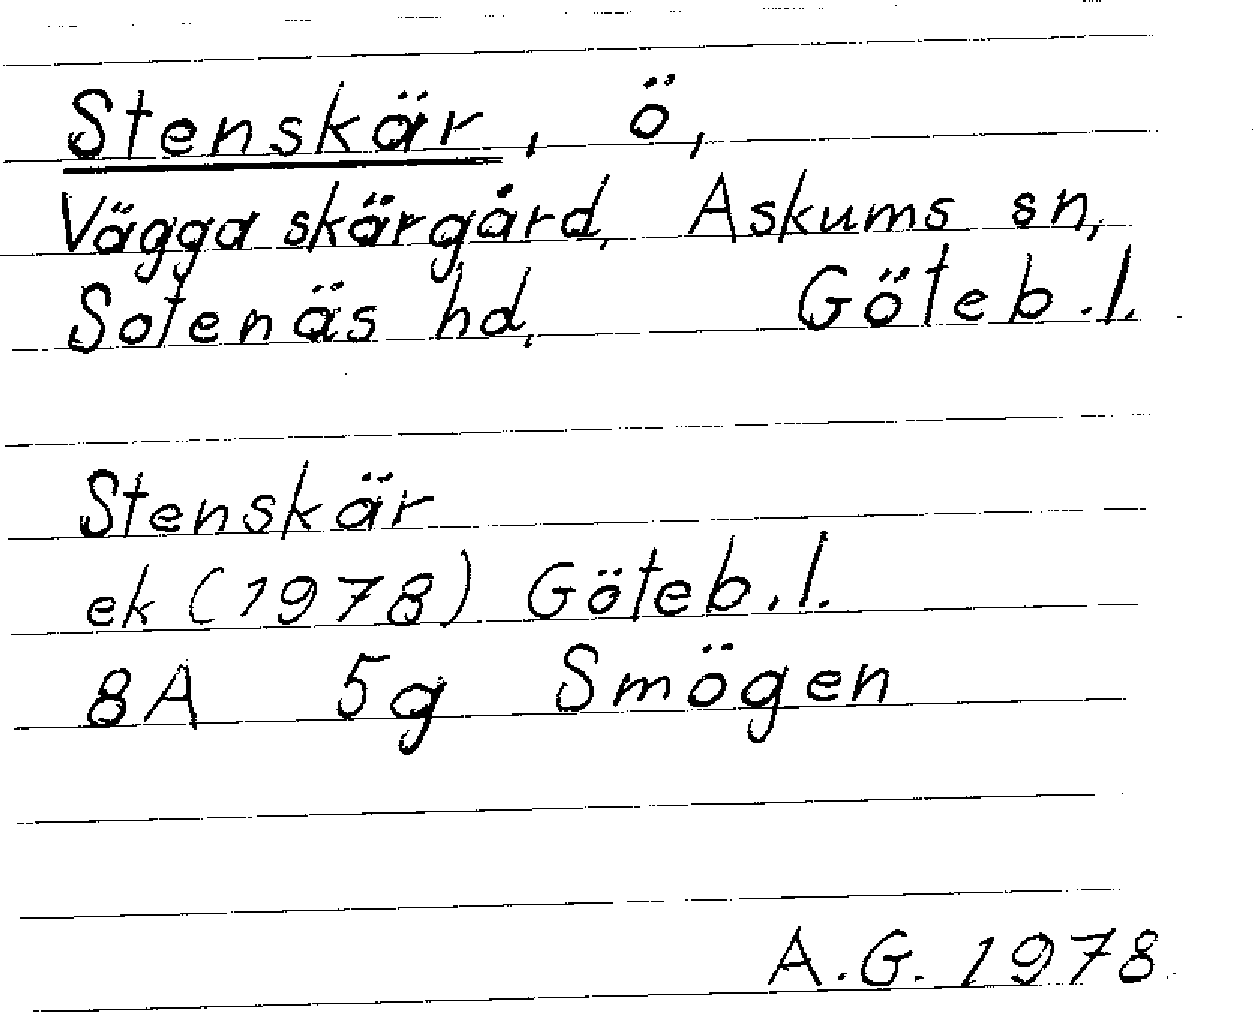 Stenskär, ö,
Vägga skärgård, Askums sn,
Sotenäs hd, Göteb.l.
Stenskär
ek (1978) Göteb.l.
8A 5g Smögen
A.G. 1978